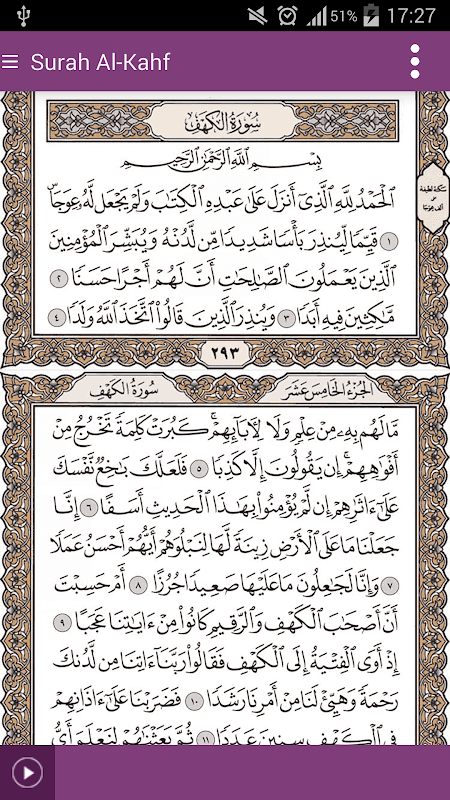 51% 17:27
Surah Al-Kahf
سُورَةُ الكَهْفِ
بِسْمِ اللَّهِ الرَّحْمَٰنِ الرَّحِيمِ
الْحَمْدُ لِلَّهِ الَّذِي أَنزَلَ عَلَىٰ عَبْدِهِ الْكِتَٰبَ وَلَمْ يَجْعَل لَّهُ عِوَجَاۜ
١ قَيِّمًا لِّيُنذِرَ بَأْسًا شَدِيدًا مِّن لَّدُنْهُ وَيُبَشِّرَ الْمُؤْمِنِينَ
الَّذِينَ يَعْمَلُونَ الصَّٰلِحَٰتِ أَنَّ لَهُمْ أَجْرًا حَسَنًا ٢
مَّٰكِثِينَ فِيهِ أَبَدًا ٣ وَيُنذِرَ الَّذِينَ قَالُوا۟ اتَّخَذَ اللَّهُ وَلَدًا ٤
سكتة لطيفة
على
ألف عوجا
٢٩٣
الجُزْءُ الخَامِسَ عَشَرَ
سُورَةُ الكَهْفِ
مَّا لَهُم بِهِۦ مِنْ عِلْمٍ وَلَا لِءَابَآئِهِمْ ۚ كَبُرَتْ كَلِمَةً تَخْرُجُ مِنْ
أَفْوَٰهِهِمْ ۚ إِن يَقُولُونَ إِلَّا كَذِبًا ٥ فَلَعَلَّكَ بَٰخِعٌ نَّفْسَكَ
عَلَىٰٓ ءَاثَٰرِهِمْ إِن لَّمْ يُؤْمِنُوا۟ بِهَٰذَا الْحَدِيثِ أَسَفًا ٦ إِنَّا
جَعَلْنَا مَا عَلَى الْأَرْضِ زِينَةً لَّهَا لِنَبْلُوَهُمْ أَيُّهُمْ أَحْسَنُ عَمَلًا
٧ وَإِنَّا لَجَٰعِلُونَ مَا عَلَيْهَا صَعِيدًا جُرُزًا ٨ أَمْ حَسِبْتَ
أَنَّ أَصْحَٰبَ الْكَهْفِ وَالرَّقِيمِ كَانُوا۟ مِنْ ءَايَٰتِنَا عَجَبًا ٩
إِذْ أَوَى الْفِتْيَةُ إِلَى الْكَهْفِ فَقَالُوا۟ رَبَّنَآ ءَاتِنَا مِن لَّدُنكَ
رَحْمَةً وَهَيِّئْ لَنَا مِنْ أَمْرِنَا رَشَدًا ١٠ فَضَرَبْنَا عَلَىٰٓ ءَاذَانِهِمْ
فِي الْكَهْفِ سِنِينَ عَدَدًا ١١ ثُمَّ بَعَثْنَٰهُمْ لِنَعْلَمَ أَيُّ